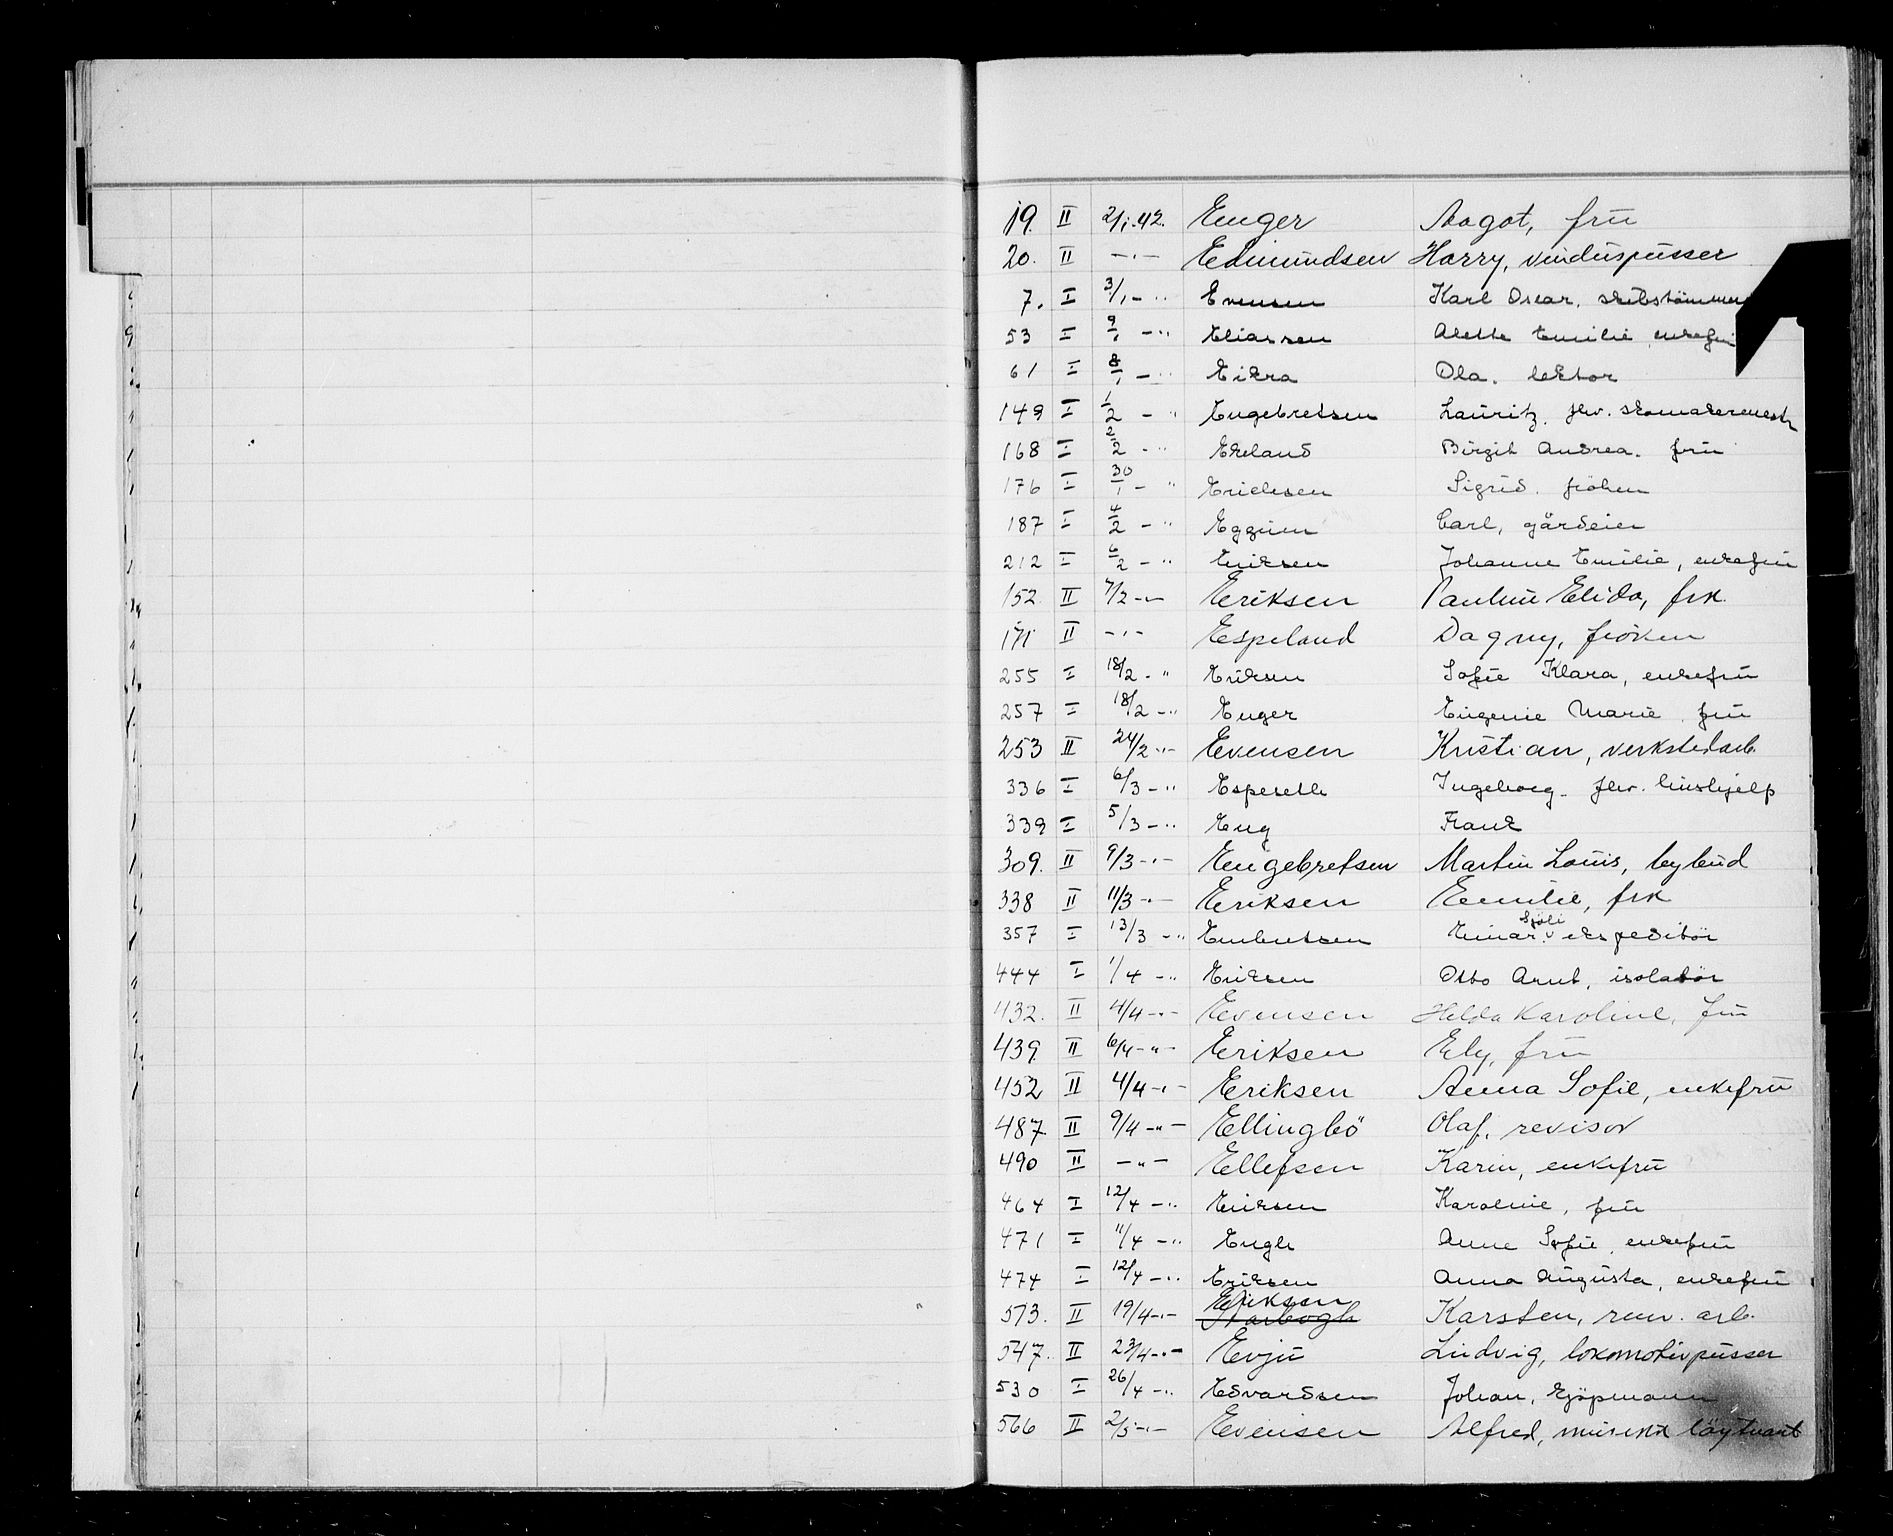 19. II 2/1.42. Enger Aagot, frū
20. II –"– Edmundsen Harry, vinduspusser
7. I 3/1 – " Evensen Karl Oscar. skibstømmer
53 I 9/1 – " Eliassen Alette Emilie enkefrū
61 I 8/1 – " Eikra Ola. lektor
149 I 1/2 – " Engebretsen Lauritz. fhv. skomakermestr
168 I 2/2 - " Ekeland Birgit Andrea. frū
176 I 30/1 – " Erichsen Sigrid. fröken
187 I 4/2 – " Eggum Carl, gårdeier
212 I 6/2 – " Eriksen Johanne Emilie, enkefrū
152 II 7/2 –"– Eriksen Pauline Elida, frk.
171 II –"– Espeland Dagny, fröken
255 I 18/2 - " Eriksen Sofie Klara, enkefrū
257 I 18/2 – " Enger Eugenie Marie frū
253 II 24/2 –"– Evensen Kristian, verkstedarb.
336 I 6/3 – " Espeseth Ingeborg. fhv. hushjelp
339 I 5/3 – " Eng Frank
309. II 9/3 –"– Engebretsen Martin Louis, bybud
338 II 11/3 –"– Eriksen Emilie, frk
357 I 13/3 – " Embretsen Einar Sjöli ekspeditör
444 I 1/4 – " Eriksen Otto Arnt, isolatör
432. II 4/4 –"– Evensen Helda Karoline, frū
439. II 6/4 –"– Eriksen Ely, frū
452 II 4/4 –"– Eriksen Anna Sofie, enkefrū
487. II 9/4 –"– Ellingbö Olaf, revisor
490 II –"– Ellefsen Karin, enkefrū
464 I 12/4 – " Eriksen Karoline, frū
471 I 11/4 – " Engh Anne Sofie, enkefrū
474 I 12/4 – " Eriksen Anna Augusta, enkefrū
513. II 19/4 –"– Eriksen Karsten, renv. arb.
547. II 23/4 –"– Evju Ludvig, lokomotivpusser
530 I 26/4 – " Edvardsen Johan, kjöpmann
566 II 2/5 –"– Evensen Alfred, musikk löytnant